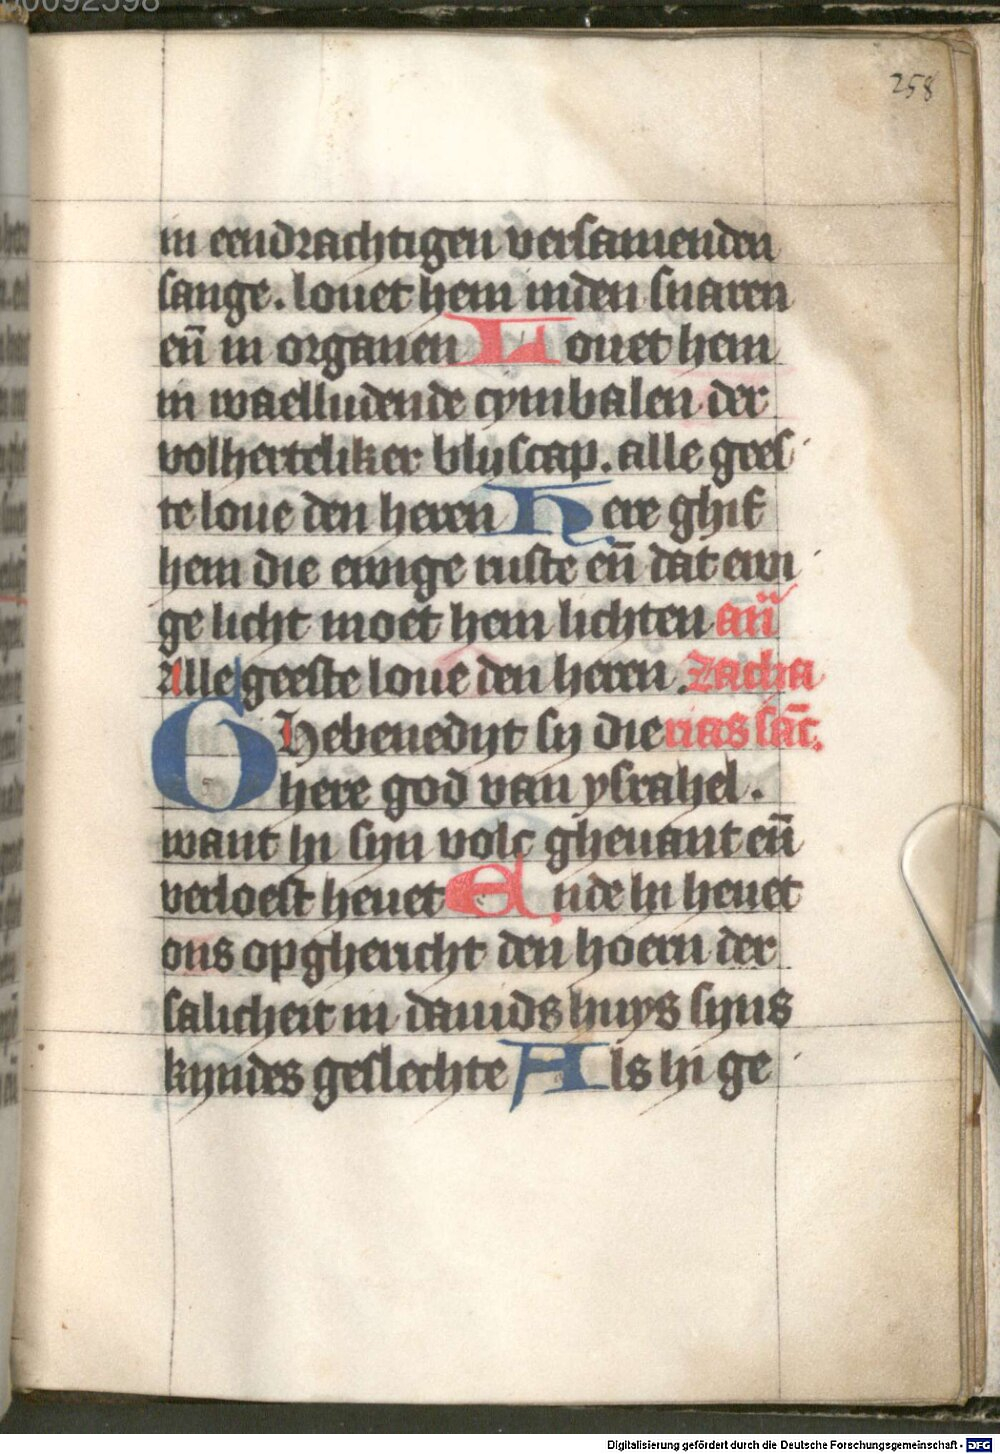 00092598
258
in eendrachtigen versamenden
sange. louet hem inden snaren
en̄ in organen Louet hem
in waelludende cymbalen der
volherteliker blijscap. alle gees
te loue den heren Here ghif
hem die ewige ruste en̄ dat ewi
ge licht moet hem lichten an̄
Alle geeste loue den heren. Zacha
GHebenedijt sij die rias sāc.
here god van ysrahel.
want hi sijn volc gheuant en̄
verloest heuet Ende hi heuet
ons opghericht den hoern der
salicheit in dauids huys sijns
kijndes geslechte Als hi ge
Digitalisierung gefördert durch die Deutsche Forschungsgemeinschaft - DFG